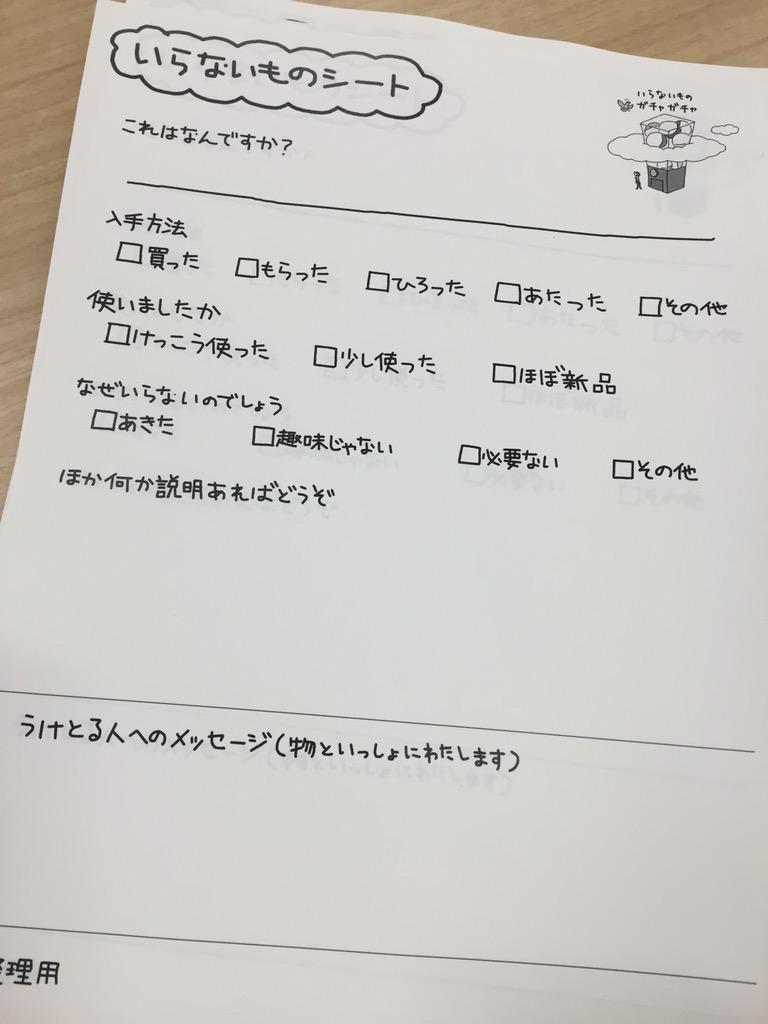 いらないものシート
いらないもの
ガチャガチャ
これはなんですか？
入手方法
□買った □もらった □ひろった □あたった □その他
使いましたか
□けっこう使った □少し使った □ほぼ新品
なぜいらないのでしょう
□あきた □趣味じゃない □必要ない □その他
ほか何か説明あればどうぞ
うけとる人へのメッセージ(物といっしょにわたします)
理用